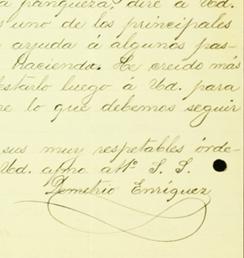 franqueza, diré á Ud.
uno de los principales
ayuda á algunos pas-
Hacienda. He creido más
luego á Ud. para
lo que debemos seguir
sus muy respetables órde-
Ud. afmo. a Sº S. S.
Demetrio Enriquez